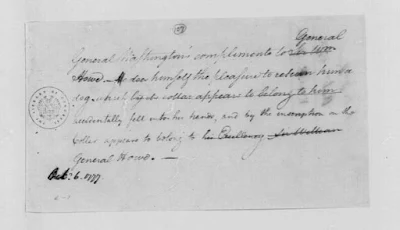 General
General Washington's compliments to
Howe. does himself the pleasure to return him a
dog, which by the collar appears to belong to him
accidentally fell into his hands, and by the inscription on the
Collar appears to belong to his Excellency Sir William
General Howe. —
Oct. 6. 1777